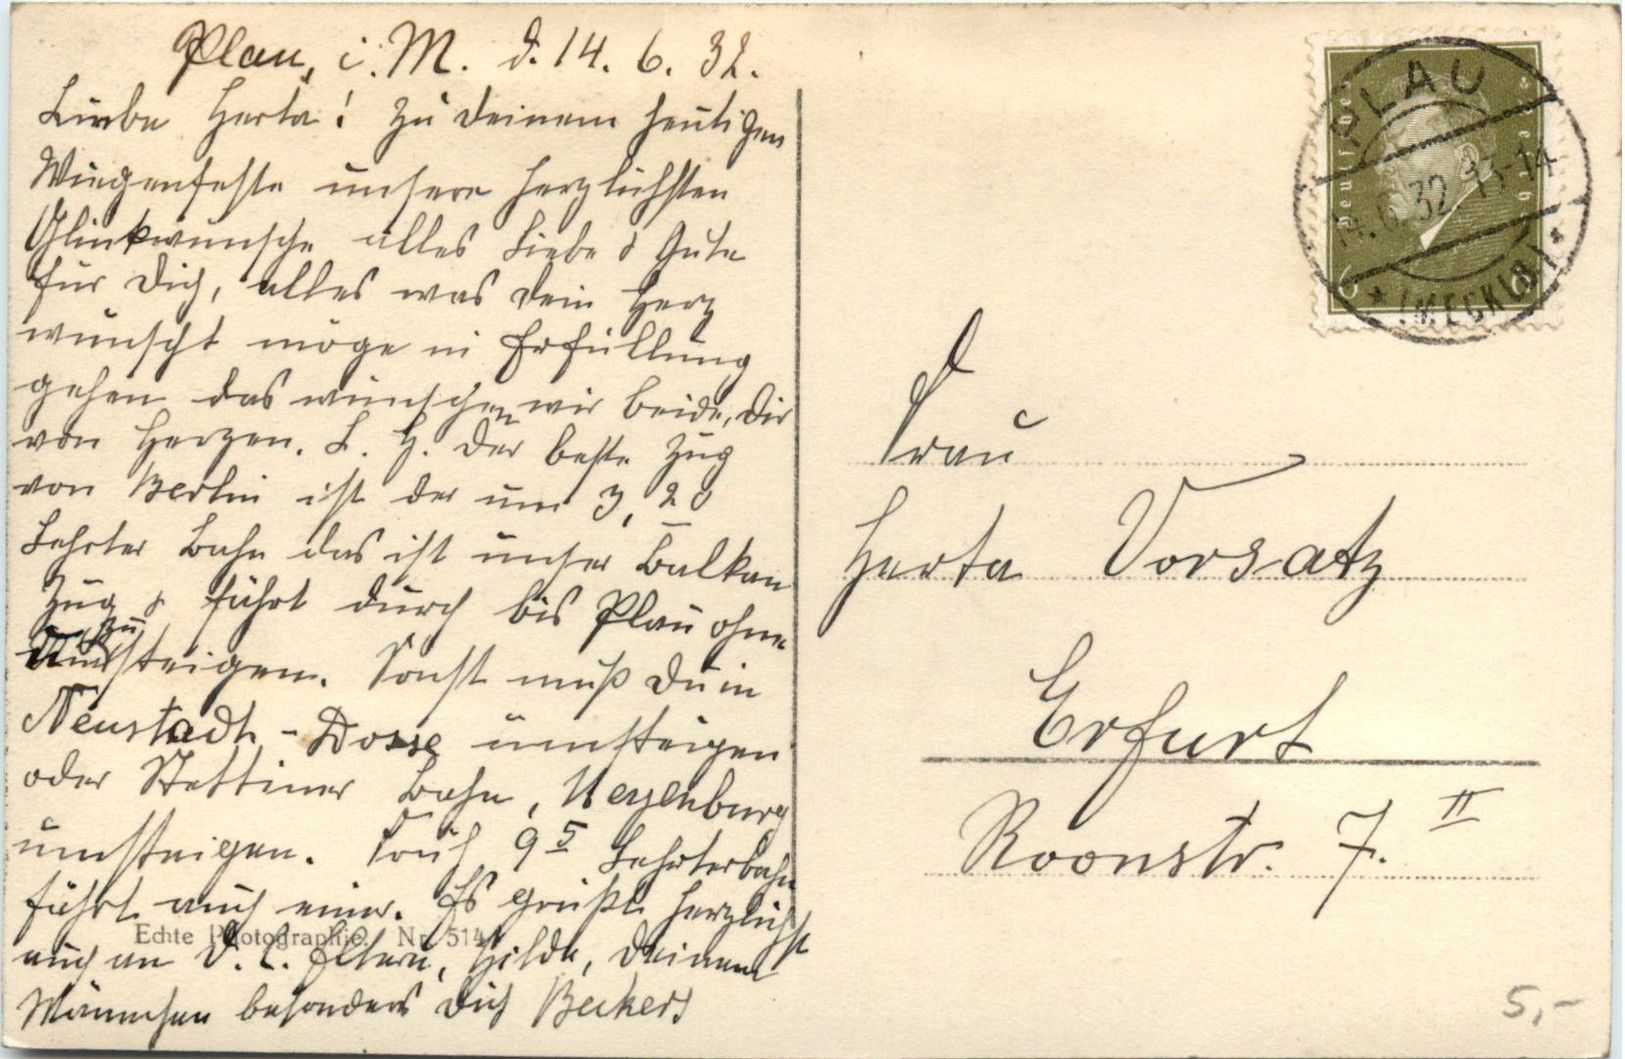 Plau, i. M. d. 14. 6. 32.
Liebe Herta! Zu deinem heutigen
Wiegenfeste unsere herzlichsten
Glückwünsche alles Liebe & Gute
für Dich, alles was dein Herz
wünscht möge in Erfüllung
gehen das wünschen wir beide, Dir
von Herzen. L. H. der beste Zug
von Berlin ist der um 3,20
Lehrter Bahn das ist unser Balkan
Zug & führt durch bis Plau ohne
umzusteigen. Sonst mußt Du in
Neustadt-Dosse umsteigen
oder Stettiner Bahn, Meyenburg
umsteigen. Früh 9 5 Lehrterbahn
führt auch einer. Es grüßt herzlichst
auch an D. L. Eltern, Hilde, Deinem
Männchen besonders Dich Beckers
Echte Photographie. Nr. 514
Deutsches Reich
6 6
PLAU
14.6.32.13-14
* (MECKLB) *
Frau
Herta Vorsatz
Erfurt
Roonstr. 7. II
5,-